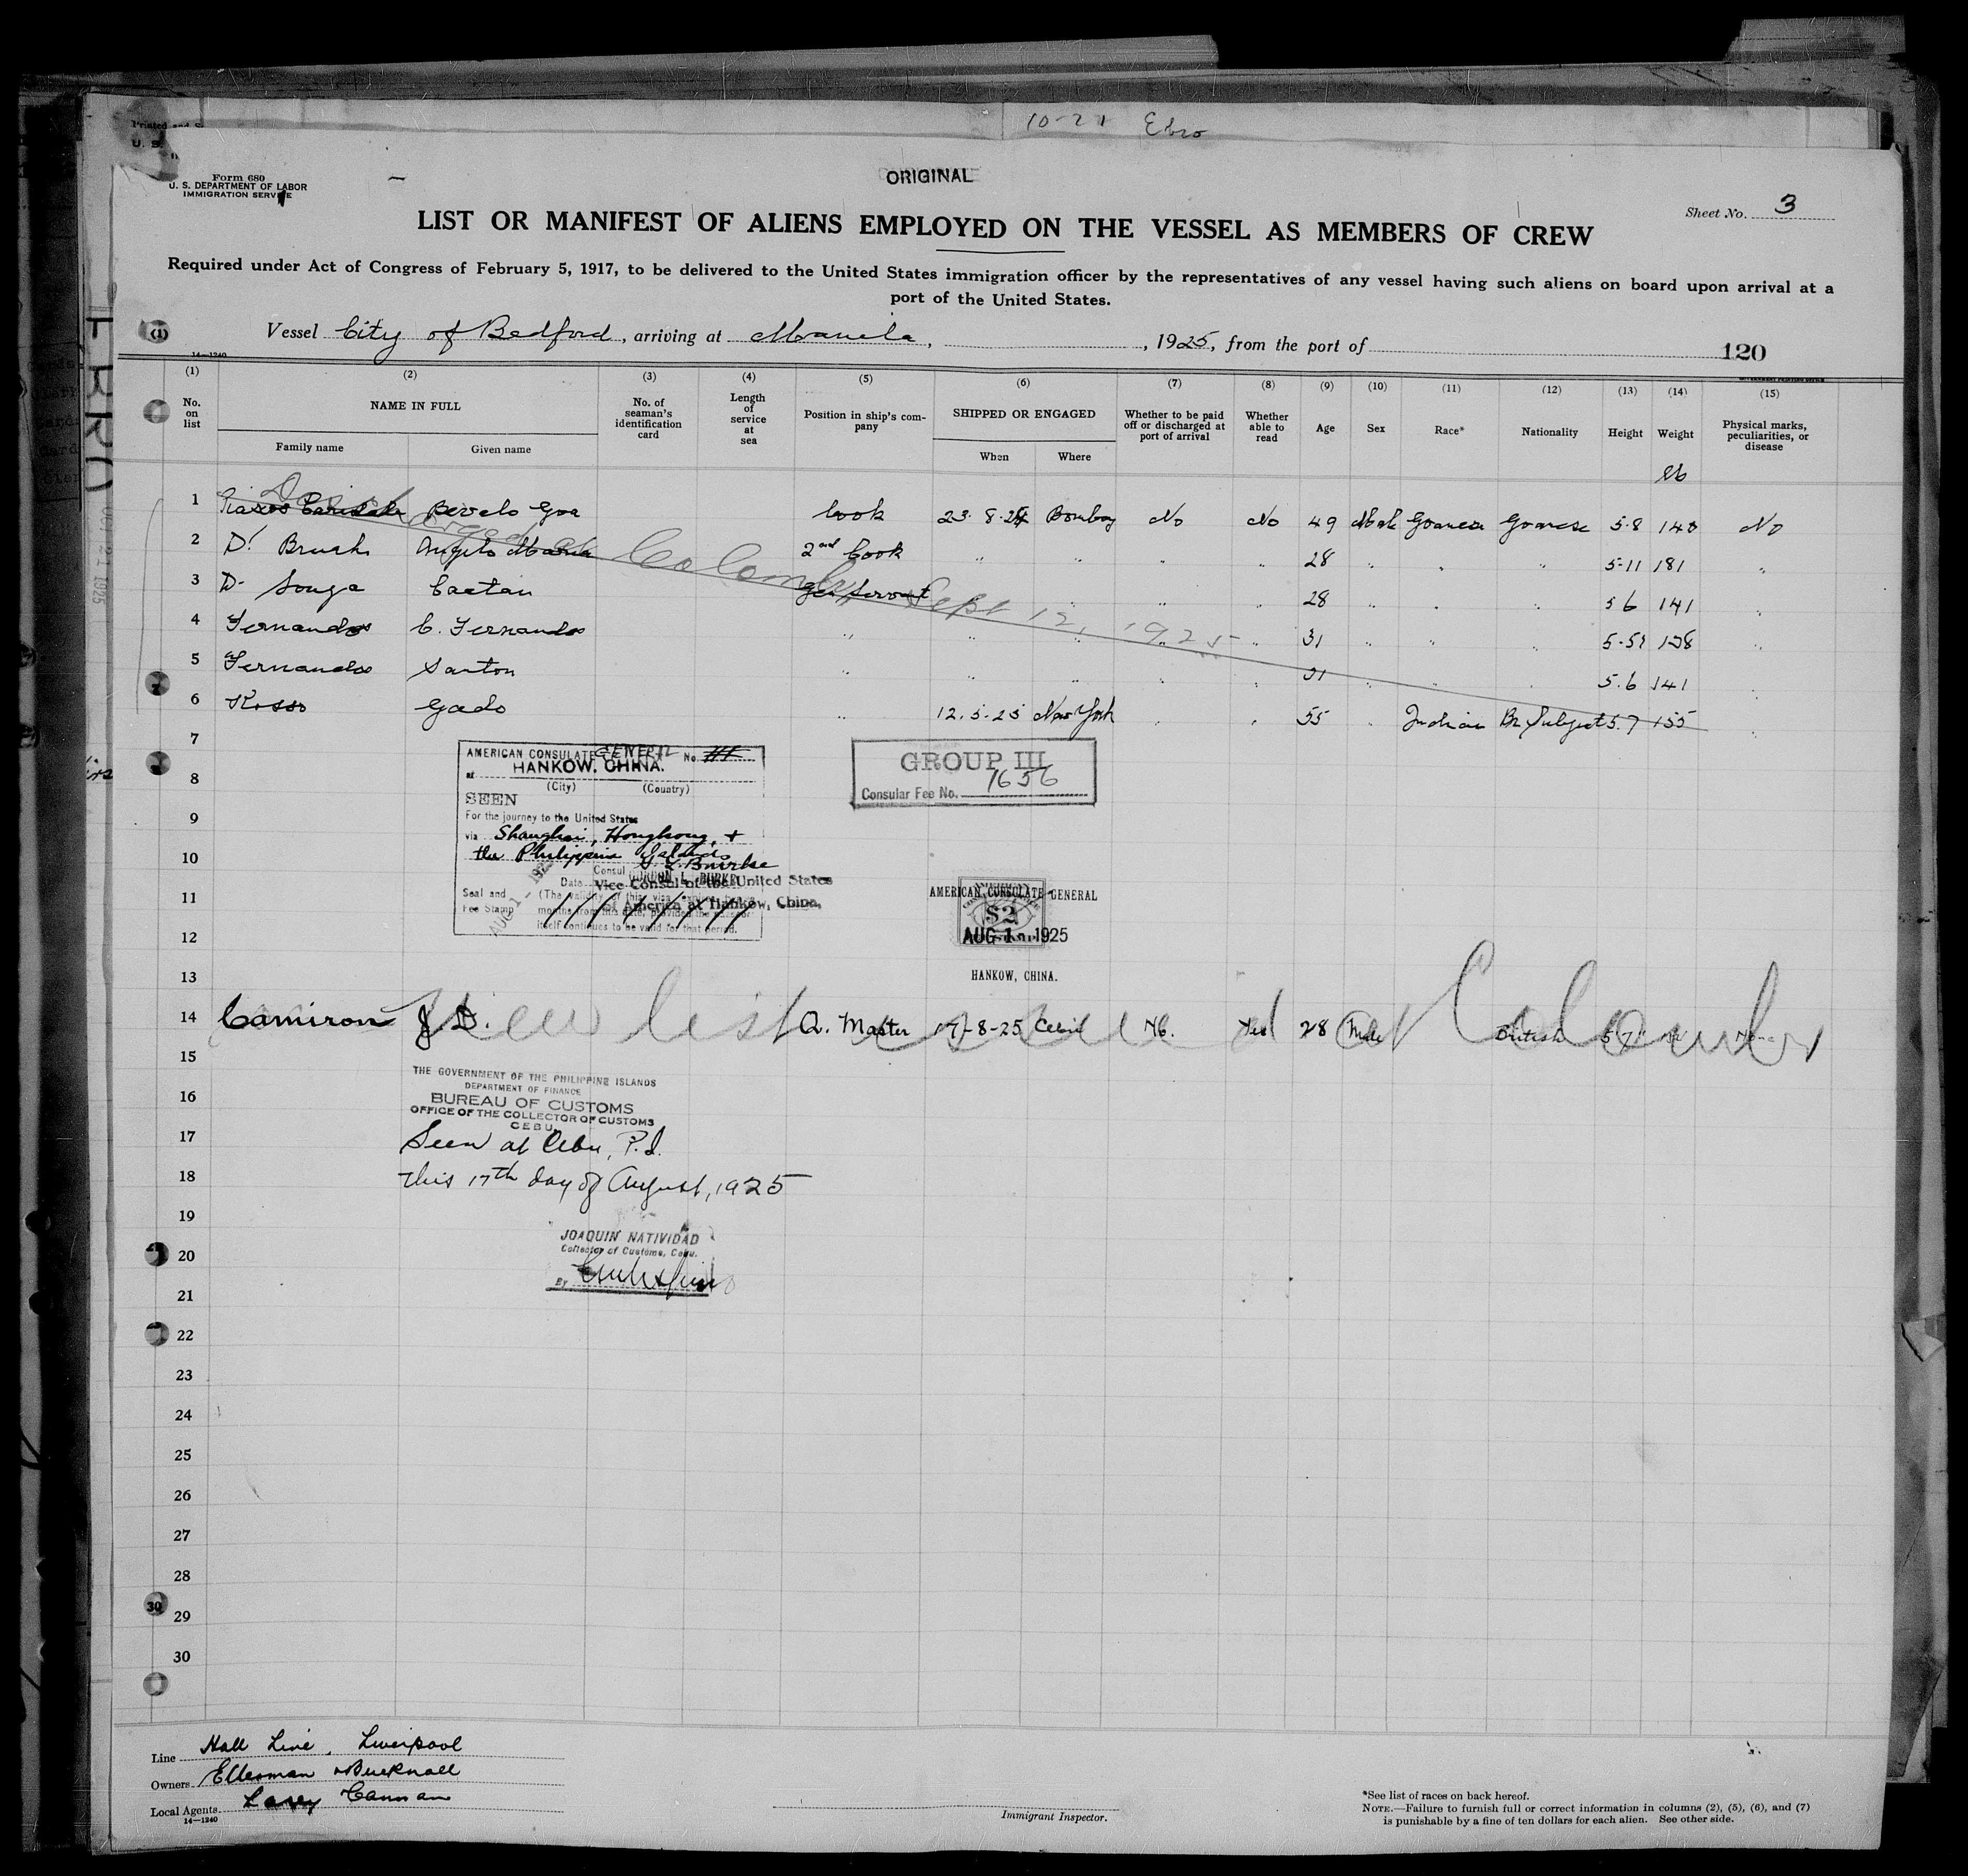 10-21 Ebro
ORIGINAL
Form 680
U. S. DEPARTMENT OF LABOR
IMMIGRATION SERVICE
Sheet No. 3
LIST OR MANIFEST OF ALIENS EMPLOYED ON THE VESSEL AS MEMBERS OF CREW
Required under Act of Congress of February 5, 1917, to be delivered to the United States immigration officer by the representatives of any vessel having such aliens on board upon arrival at a
port of the United States.
Vessel City of Bedford, arriving at Manila, , 1925, from the port of
14—1240
120
(1) (2) (3) (4) (5) (6) (7) (8) (9) (10) (11) (12) (13) (14) (15)
No. on list NAME IN FULL No. of seaman's identification card Length of service at sea Position in ship's company SHIPPED OR ENGAGED Whether to be paid off or discharged at port of arrival Whether able to read Age Sex Race* Nationality Height Weight Physical marks, peculiarities, or disease
Family name Given name When Where
lb
1 Bevelo Goa Cook 23.8.24 Bombay No No 49 Male Goanese Goanese 5.8 140 No
2 Angelo Maria 2nd Cook " " " " 28 " " " 5-11 181 "
3 D. Souza Caetan Gen Servant " " " 28 " " " 5 6 141 "
4 Fernandes C. Fernandes " " " " " 31 " " " 5-5½ 128 "
5 Fernandes Santon " " " " " 31 " " " 5.6 141 "
6 Rosso Gado " 12.5.25 New York " " 55 " Indian Br Subject 5.7 155 "
Discharged at Colombo Sept 12, 1925
7
8
9
10
11
12
13
AMERICAN CONSULATE GENERAL No.
at HANKOW, CHINA.
(City) (Country)
SEEN
For the journey to the United States
via Shanghai, Hongkong, +
the Philippine Islands
G. L. Burke
Consul GORDON L. BURKE
Date Vice Consul of the United States
of America at Hankow, China.
Seal and
Fee Stamp
(The validity of this visa
months from this date, provided the passport
itself continues to be valid for that period.
AUG 1 - 1925
GROUP III
Consular Fee No. 1656
AMERICAN CONSULATE GENERAL
$2
AUG 1 - 1925
HANKOW, CHINA.
14 Camiron J D. Q. Master 17-8-25 Cebu No. Yes 28 Male British 5 7"
New list at Colombo
15
16
17
18
19
20
21
22
23
24
25
26
27
28
29
30
THE GOVERNMENT OF THE PHILIPPINE ISLANDS
DEPARTMENT OF FINANCE
BUREAU OF CUSTOMS
OFFICE OF THE COLLECTOR OF CUSTOMS
CEBU.
Seen at Cebu, P.I.
this 17th day of August, 1925
JOAQUIN NATIVIDAD
Collector of Customs, Cebu.
By
Line Hall Line, Liverpool
Owners Ellerman & Bucknall
Local Agents
14—1240
Immigrant Inspector.
*See list of races on back hereof.
NOTE.—Failure to furnish full or correct information in columns (2), (5), (6), and (7)
is punishable by a fine of ten dollars for each alien. See other side.